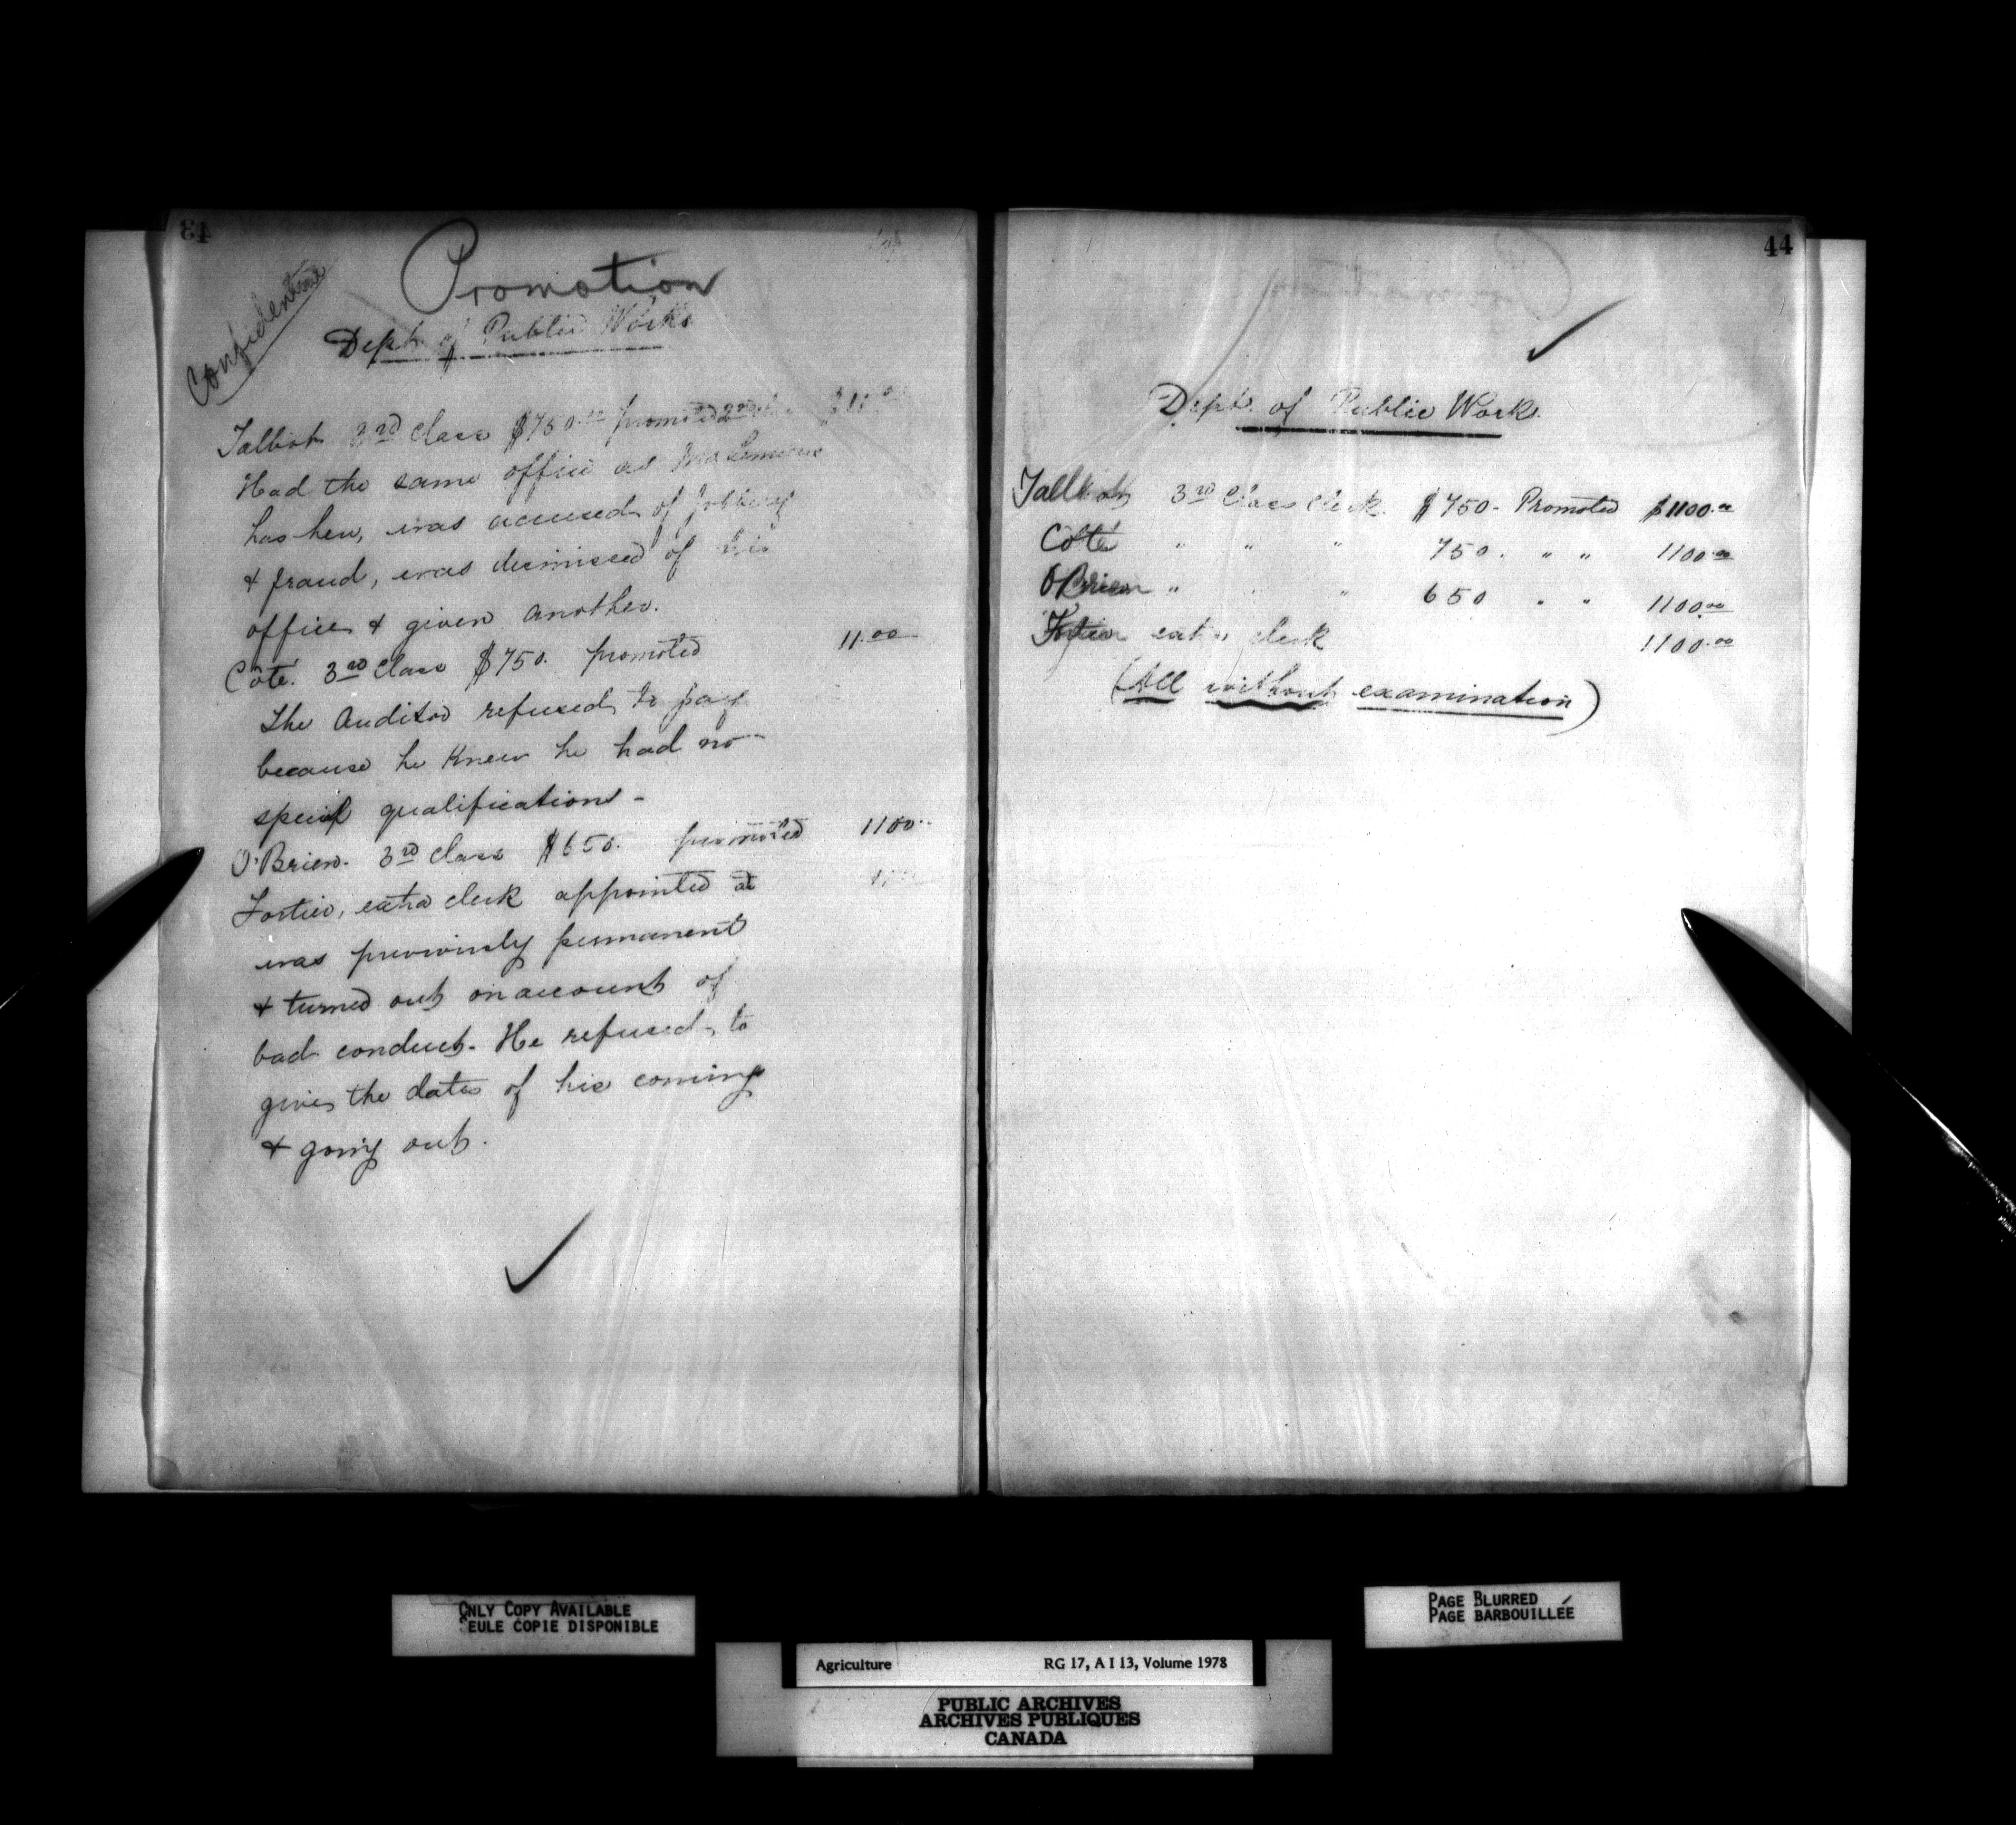 43
Confidential
Promotion
Dept. of Public Works
Talbot 3rd Class $750.00 promoted 2nd
Had the same office as
has here, was accused of jobbery
& fraud, was dismissed of his
office & given another.
Coté. 3rd Class $750. promoted 11.00
The Auditor refused to pay
because he knew he had no
special qualifications -
O'Brien. 3rd Class $650. promoted 1100..
Fortier, extra clerk appointed at
was previously permanent
& turned out on account of
bad conduct. He refused to
give the dates of his coming
& going out.
44
Dept. of Public Works.
Talbot 3rd Class Clerk. $750- Promoted $1100.00
Coté " " " 750. " " 1100.00
O'Brien " " " 650 " " 1100.00
Fortier extra clerk 1100.00
(All without examination)
ONLY COPY AVAILABLE
SEULE COPIE DISPONIBLE
PAGE BLURRED
PAGE BARBOUILLÉE
Agriculture RG 17, A I 13, Volume 1978
PUBLIC ARCHIVES
ARCHIVES PUBLIQUES
CANADA